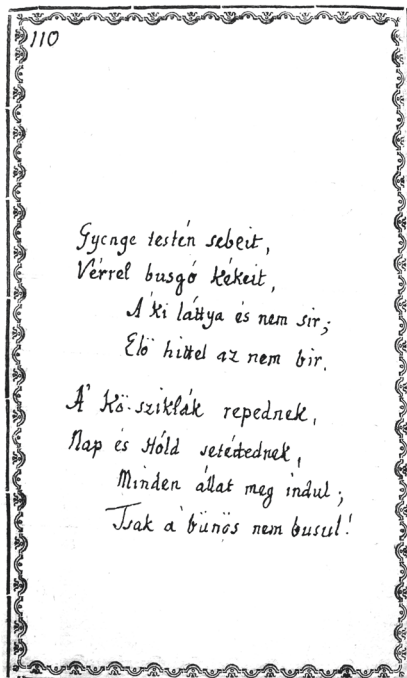 110
Gyenge testén sebeit,
Vérrel busgó kékeit,
A' ki láttya és nem sir;
Elö hittel az nem bir.
A' Kö-sziklák repednek,
Nap és Hóld setétednek,
Minden állat meg indul;
Tsak a' bünös nem busul!